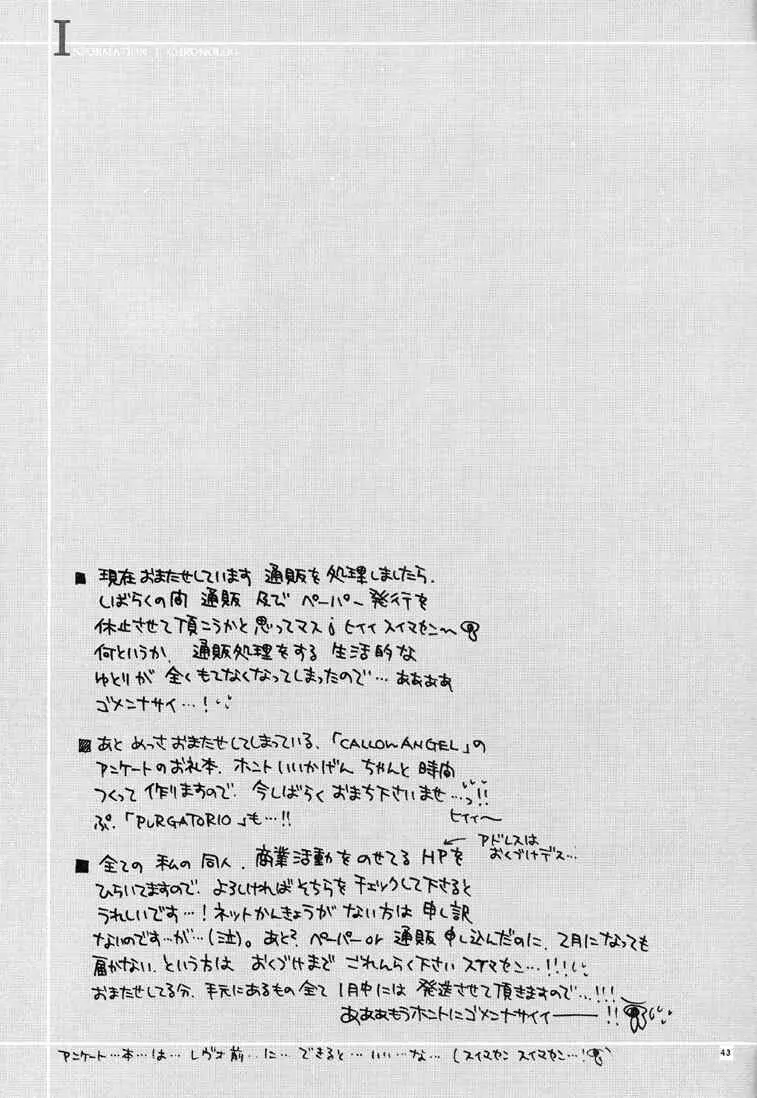 INFORMATION | CHRONOLOG
■ 現在おまたせしています 通販を処理しましたら、
しばらくの間 通販 及び ペーパー発行を
休止させて頂こうかと思ってマス¡ ヒイィ スイマセン〜
何というか、通販処理をする 生活的な
ゆとりが 全くもてなくなってしまったので…ああああ
ゴメンナサイ…!
▨ あと めっさおまたせしてしまっている、「CALLOW ANGEL」の
アンケートのお礼本、ホントいいかげん ちゃんと 時間
つくって 作りますので、今しばらく おまち下さいませ…っ!!
ぷ、「PURGATORIO」も…!!
ヒイィ〜
■ 全ての 私の同人、商業活動をのせてる HPを
← アドレスは
おくづけデス…
ひらいてますので、よろしければそちらを チェックして下さると
うれしいです…! ネットかんきょうが ない方は 申し訳
ないのです…が…(泣)。あと、ペーパーor 通販 申し込んだのに、2月になっても
届かない、という方は おくづけまで ごれんらく下さい スイマセン…!!!
おまたせしてる分、手元にあるもの全て 1月中には 発送させて頂きますので…!!!
あああもうホントにゴメンナサイィ――!!
アンケート…本…は…レヴォ前…に…できると…いい…な…(スイマセン スイマセン…!
43